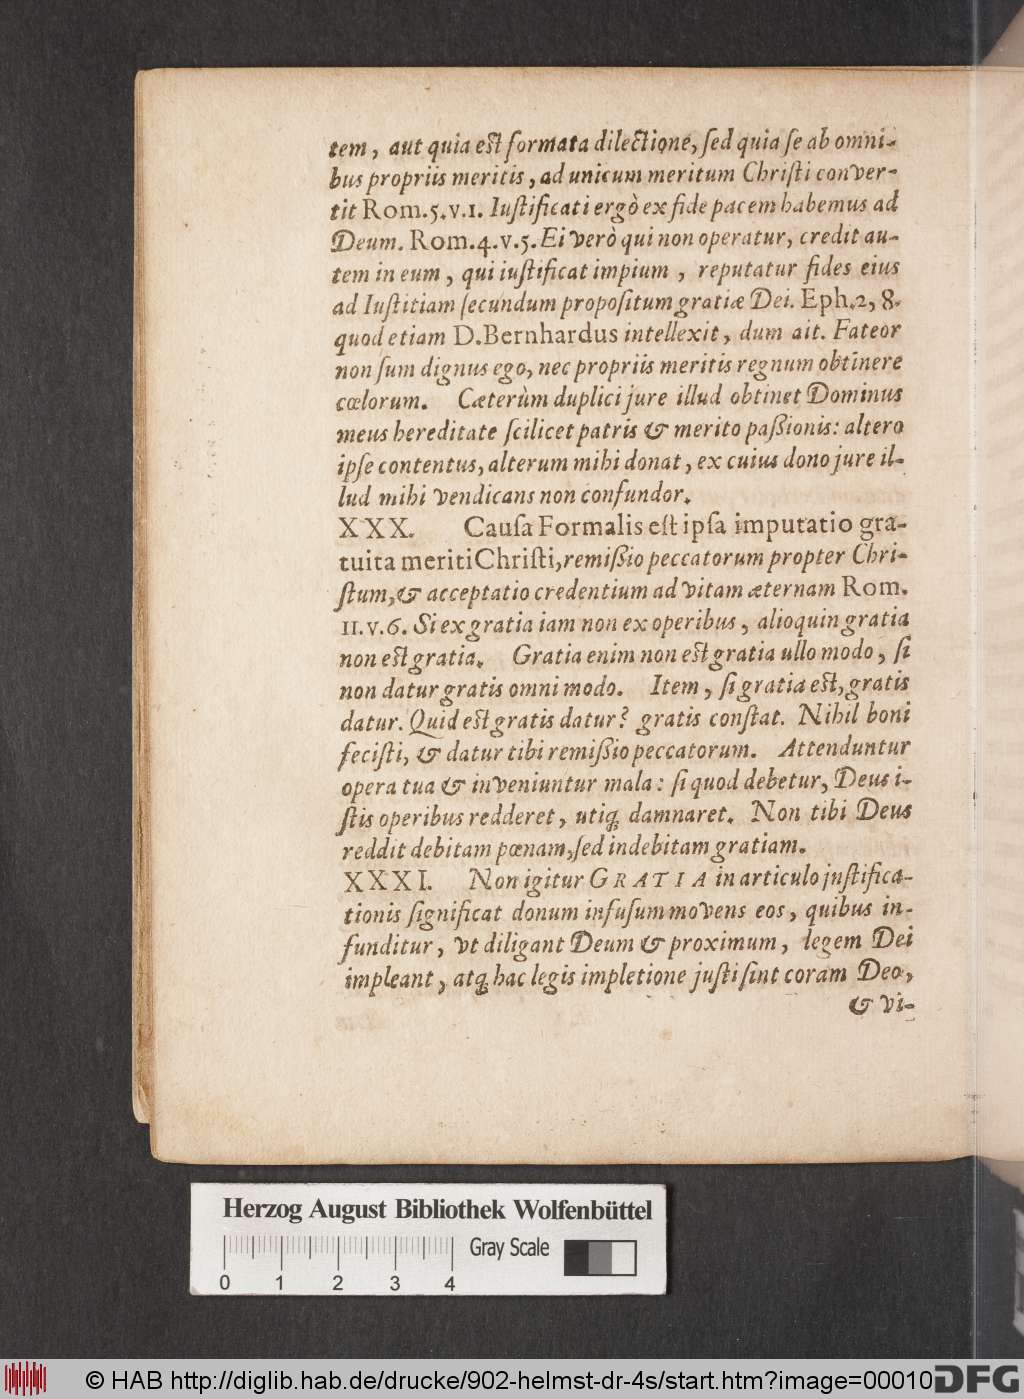 tem, aut quia est formata dilectione, sed quia se ab omni-
bus propriis meritis, ad unicum meritum Christi conver-
tit Rom.5.v.1. Iustificati ergò ex fide pacem habemus ad
Deum. Rom.4.v.5. Ei verò qui non operatur, credit au-
tem in eum, qui iustificat impium, reputatur fides eius
ad Iustitiam secundum propositum gratiæ Dei. Eph.2, 8.
quod etiam D. Bernhardus intellexit, dum ait. Fateor
non sum dignus ego, nec propriis meritis regnum obtinere
cœlorum. Cæterùm duplici jure illud obtinet Dominus
meus hereditate scilicet patris & merito paßionis: altero
ipse contentus, alterum mihi donat, ex cuius dono jure il-
lud mihi vendicans non confundor.
XXX. Causa Formalis est ipsa imputatio gra-
tuita meriti Christi, remißio peccatorum propter Chri-
stum, & acceptatio credentium ad vitam æternam Rom.
11.v.6. Si ex gratia iam non ex operibus, alioquin gratia
non est gratia. Gratia enim non est gratia ullo modo, si
non datur gratis omni modo. Item, si gratia est, gratis
datur. Quid est gratis datur? gratis constat. Nihil boni
fecisti, & datur tibi remißio peccatorum. Attenduntur
opera tua & inveniuntur mala: si quod debetur, Deus i-
stis operibus redderet, utiq; damnaret. Non tibi Deus
reddit debitam pœnam, sed indebitam gratiam.
XXXI. Non igitur GRATIA in articulo justifica-
tionis significat donum infusum movens eos, quibus in-
funditur, vt diligant Deum & proximum, legem Dei
impleant, atq; hac legis impletione justi sint coram Deo,
& vi-
Herzog August Bibliothek Wolfenbüttel
Gray Scale
0 1 2 3 4
© HAB http://diglib.hab.de/drucke/902-helmst-dr-4s/start.htm?image=00010
DFG